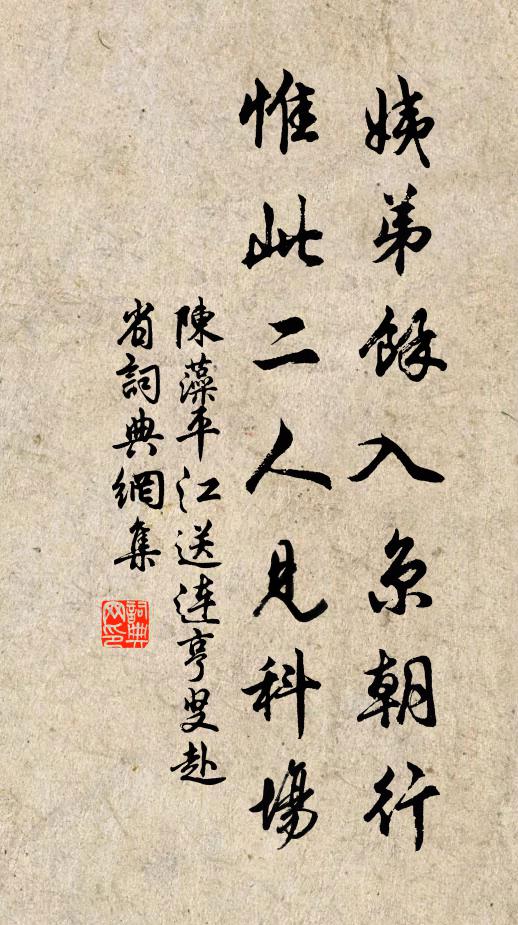 姨弟餘入京朝行
惟此二人見科場
陳藻平江送連亨叟赴
省詞典網集
詞典
网印